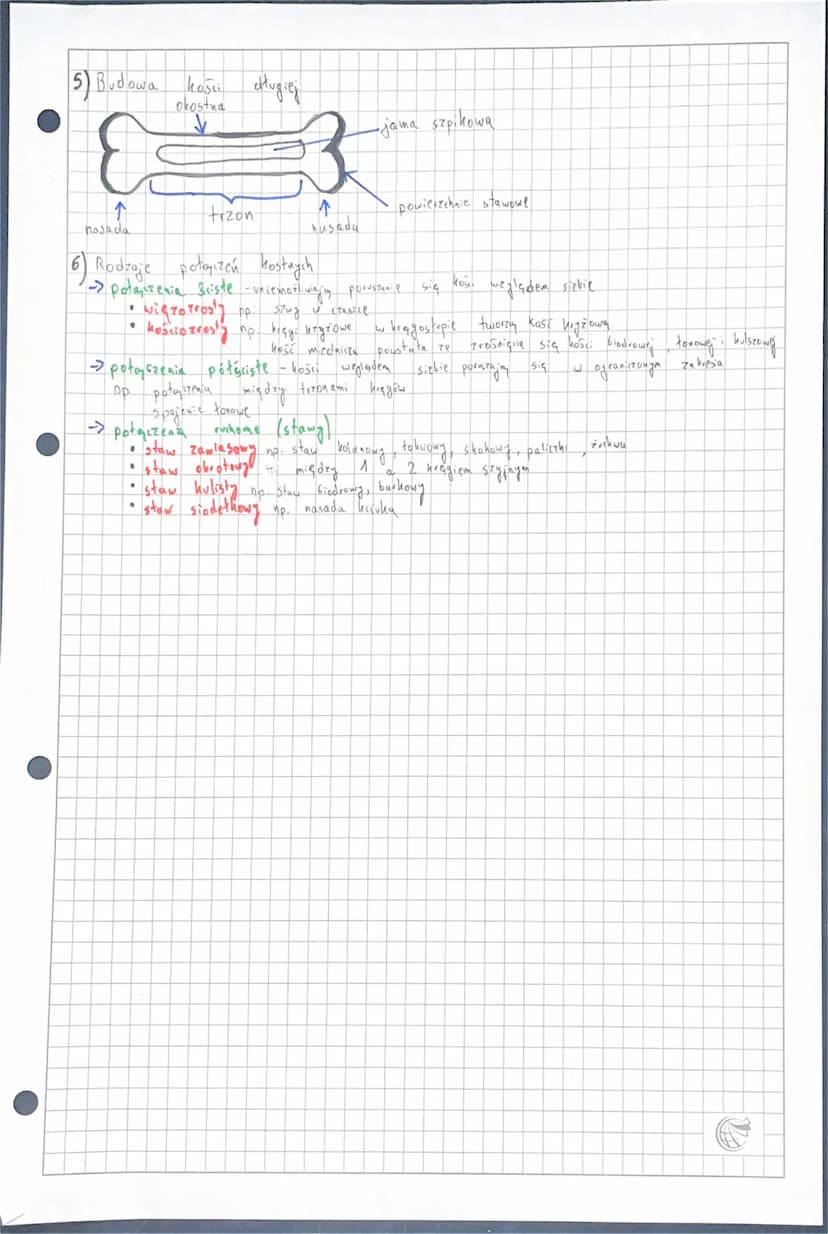 5) Budowa kości długiej
okostna
jama szpikowa
powierzchnie stawowe
trzon
nasada
nasada
6) Rodzaje połączeń kostnych
→ połączenia ścisłe - uniemożliwiają poruszanie się kości względem siebie
• więzozrosty np. szwy w czaszce
• kościozrosty np. kręgi krzyżowe w kręgosłupie tworzą kość krzyżową
kość miednicza powstała ze zrośnięcia się kości biodrowej, łonowej i kulszowej
→ połączenia półścisłe - kości względem siebie poruszają się w ograniczonym zakresie
np. połączenia między trzonami kręgów
spojenie łonowe
→ połączenia ruchome (stawy)
• staw zawiasowy np. staw kolanowy, łokciowy, skokowy, paliczki, żuchwa
• staw obrotowy między 1 a 2 kręgiem szyjnym
• staw kulisty np. staw biodrowy, barkowy
• staw siodełkowy np. nasada kciuka